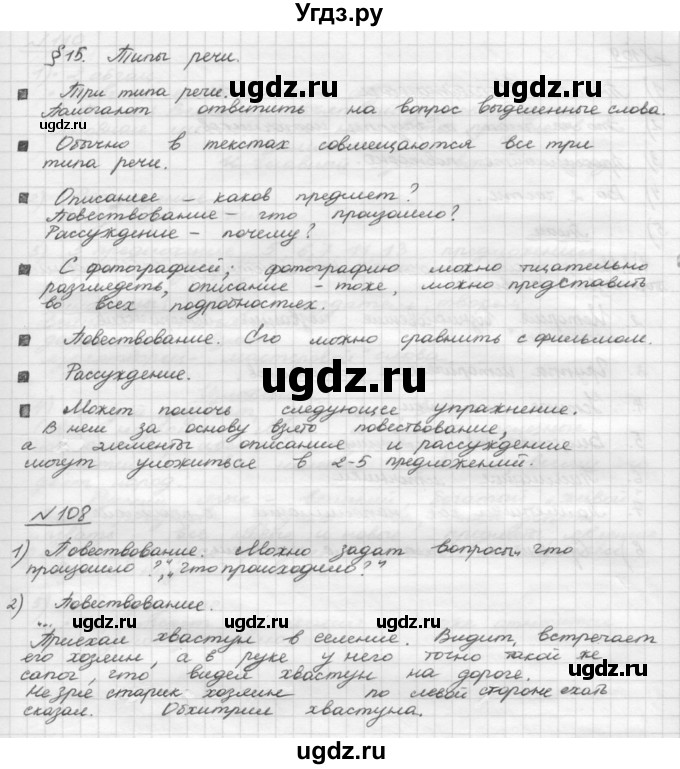 Угдз.ру
§15. Типы речи.
Три типа речи.
Помогают ответить на вопрос выделенные слова.
Обычно в текстах совмещаются все три
типа речи.
Описание – каков предмет?
Повествование – что произошло?
Рассуждение – почему?
С фотографией; фотографию можно тщательно
разглядеть, описание – тоже, можно представить
во всех подробностях.
Повествование. Его можно сравнить с фильмом.
Рассуждение.
Может помочь следующее упражнение.
В нем за основу взято повествование,
а элементы описания и рассуждения
могут уложиться в 2-5 предложений.
№108
1) Повествование. Можно задат вопросы „что
произошло?", „что происходило?"
2) Повествование.
...Приехал хвастун в селение. Видит, встречает
его хозяин, а в руке у него точно такой же
сапог, что видел хвастун на дороге.
Не зря старик хозяин по левой стороне ехать
сказал. Обхитрил хвастуна.
ugdz.ru
ugdz.ru
ugdz.ru
ugdz.ru
ugdz.ru
ugdz.ru
ugdz.ru
ugdz.ru
ugdz.ru
ugdz.ru